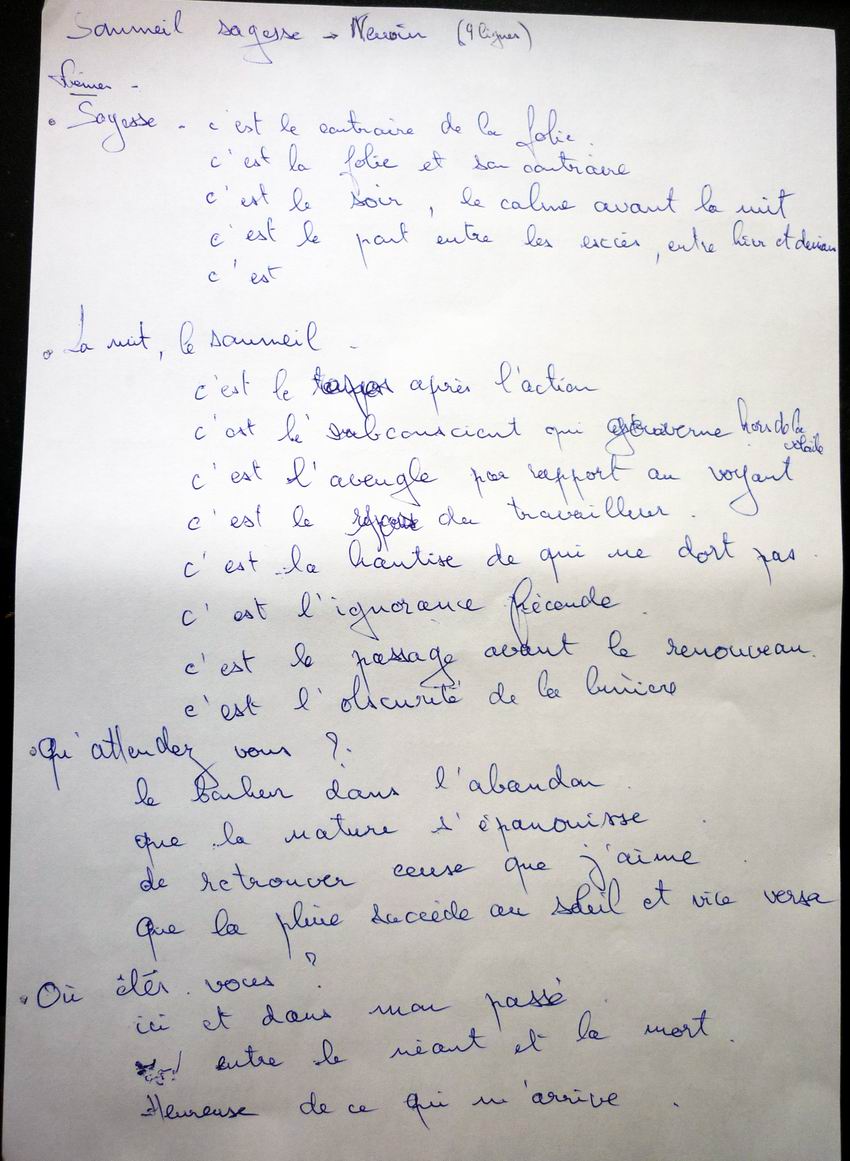 Sommeil sagesse → (9 lignes)
Thèmes -
• Sagesse - c'est le contraire de la folie.
c'est la folie et son contraire
c'est le soir, le calme avant la nuit
c'est le pont entre les excès, entre hier et demain
c'est
• La nuit, le sommeil -
c'est le après l'action
c'est le subconscient qui gouverne hors de la
volonté
c'est l'aveugle par rapport au voyant
c'est le repos du travailleur.
c'est la hantise de qui ne dort pas.
c'est l'ignorance féconde.
c'est le passage avant le renouveau.
c'est l'obscurité de la lumière
• Qu'attendez vous ?
le bonheur dans l'abandon.
que la nature s'épanouisse.
de retrouver ceux que j'aime.
Que la pluie succède au soleil et vice versa
• Où êtes vous ?
ici et dans mon passé.
entre le néant et la mort.
Heureuse de ce qui m'arrive.